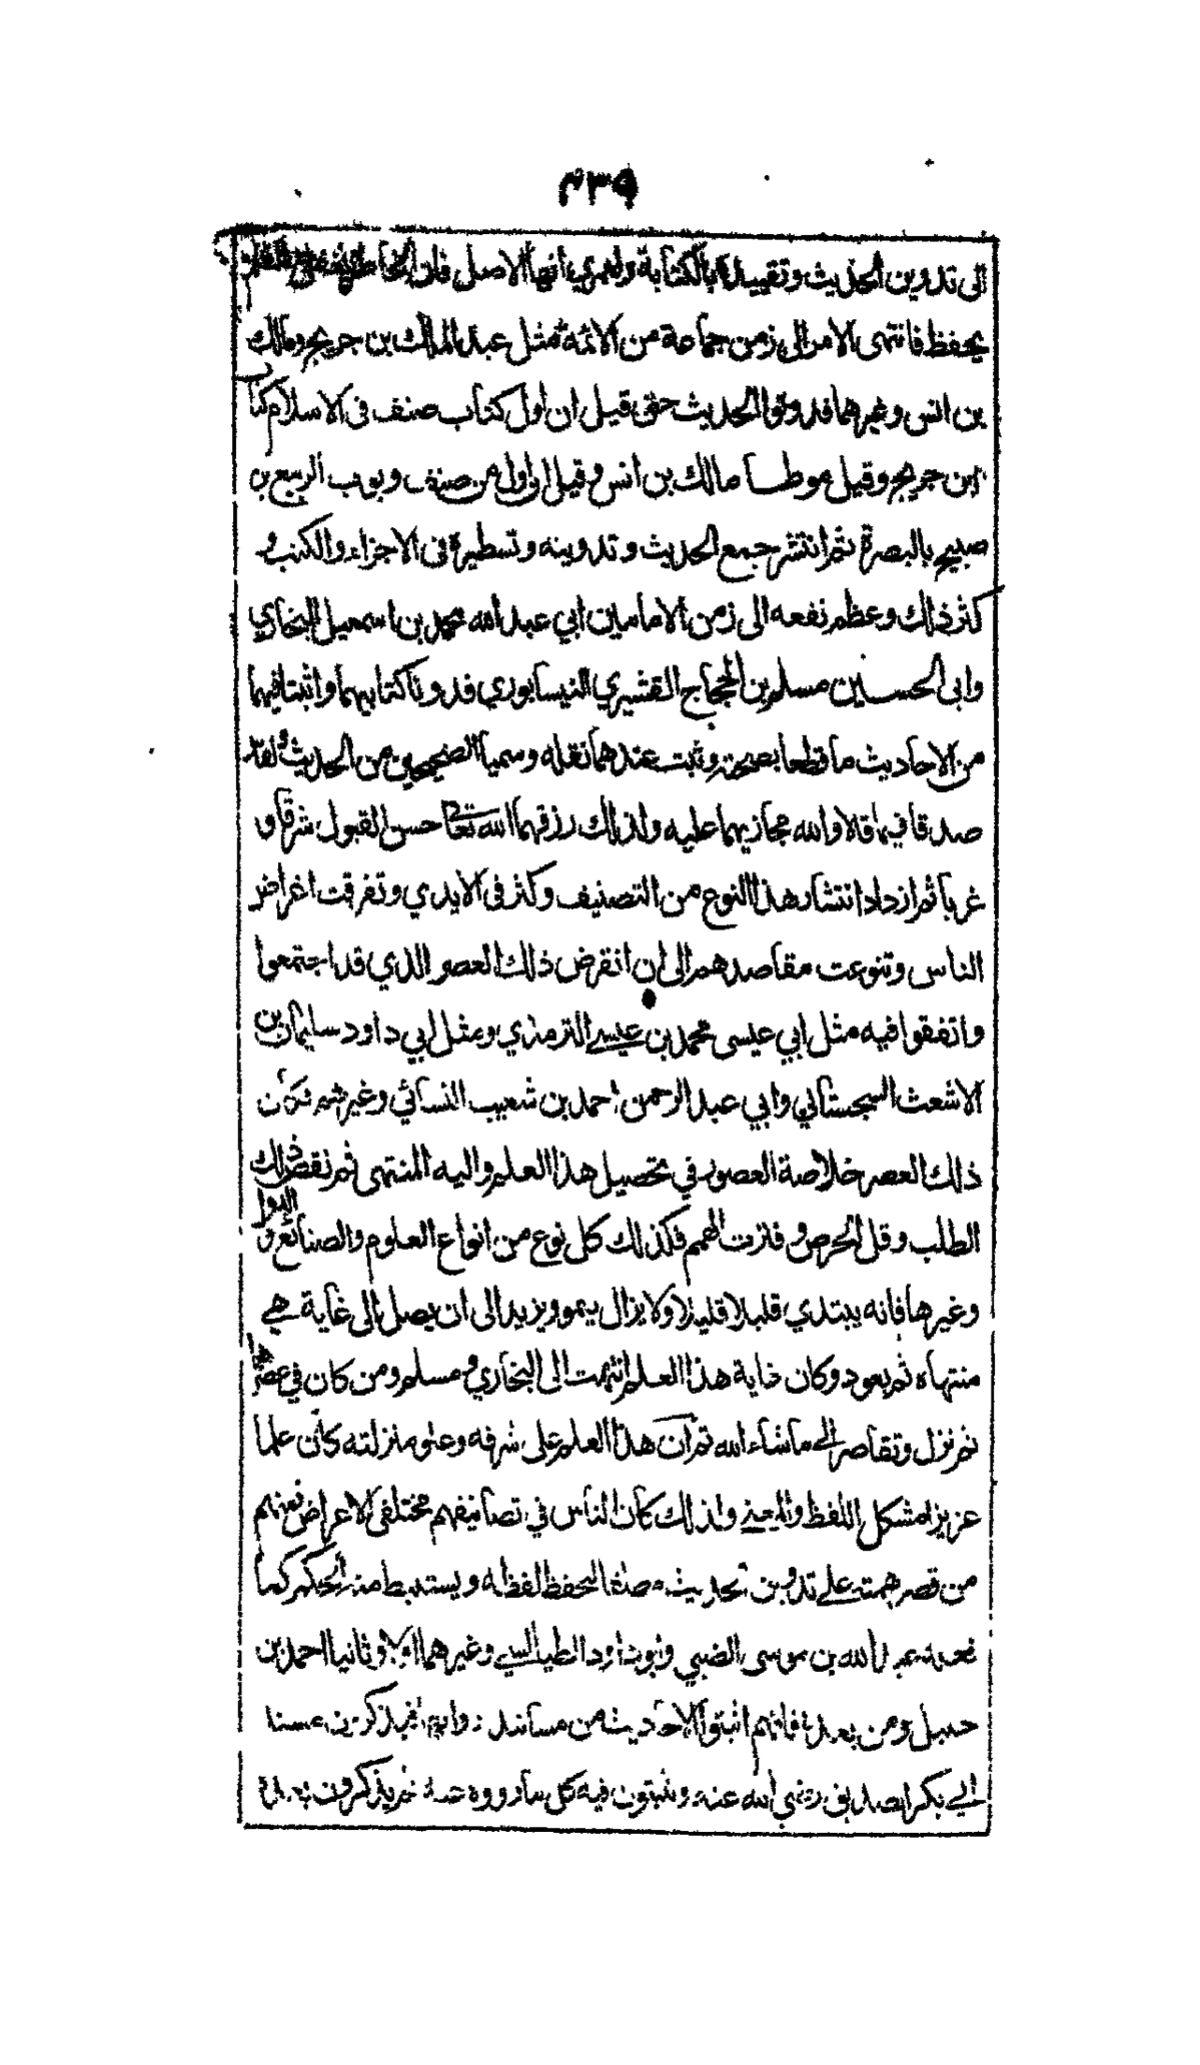 ٤٣٩
الى تدوين الحديث وتقييده بالكتابة ولعمري انها الاصل فان الخاطر يغفل والقلم
يحفظ فانتهى الامر الى زمن جماعة من الائمة مثل عبد الملك بن جريج ومالك
بن انس وغيرهما فدونوا الحديث حتى قيل ان اول كتاب صنف في الاسلام كتاب
ابن جريج وقيل موطا مالك بن انس وقيل ان اول من صنف وبوب الربيع بن
صبيح بالبصرة ثم انتشر جمع الحديث وتدوينه وتسطيره في الاجزاء والكتب و
كثر ذلك وعظم نفعه الى زمن الامامين ابي عبد الله محمد بن اسمعيل البخاري
وابي الحسين مسلم بن الحجاج القشيري النيسابوري فدونا كتابيهما واثبتا فيهما
من الاحاديث ما قطعا بصحته وثبت عندهما نقله وسميا الصحيحين من الحديث ولقد
صدقا فيما قالا والله مجازيهما عليه ولذلك رزقهما الله تعالى حسن القبول شرقا و
غربا ثم ازداد انتشار هذا النوع من التصنيف وكثر في الايدي وتفرقت اغراض
الناس وتنوعت مقاصدهم الى ان انقرض ذلك العصر الذي قد اجتمعوا
واتفقوا فيه مثل ابي عيسى محمد بن عيسى الترمذي ومثل ابي داود سليمان بن
الاشعث السجستاني وابي عبد الرحمن احمد بن شعيب النسائي وغيرهم فكان
ذلك العصر خلاصة العصور في تحصيل هذا العلم واليه المنتهى ثم نقص ذلك
الطلب وقل الحرص وفترت الهمم فكذلك كل نوع من انواع العلوم والصنائع و الدول
وغيرها فانه يبتدي قليلا قليلا ولا يزال ينمو ويزيد الى ان يصل الى غاية هي
منتهاه ثم يعود وكان غاية هذا العلم انتهت الى البخاري و مسلم ومن كان في عصرهما
ثم نزل وتقاصر الى ما شاء الله ثم ان هذا العلم على شرفه وعلو منزلته كان علما
عزيزا مشكل اللفظ والمعنى ولذلك كان الناس في تصانيفهم مختلفي الاغراض فمنهم
من قصر همته على تدوين الحديث مطلقا ليحفظ لفظه ويستنبط منه الحكم كما
فعله عبد الله بن موسى الضبي وابو داود الطيالسي وغيرهما اولا وثانيا احمد بن
حنبل ومن بعده فانهم اثبتوا الاحاديث من مسانيد رواتها فيذكرون مسند
ابي بكر الصديق رضي الله عنه ويثبتون فيه كل ما رووه عنه ثم يذكرون بعده